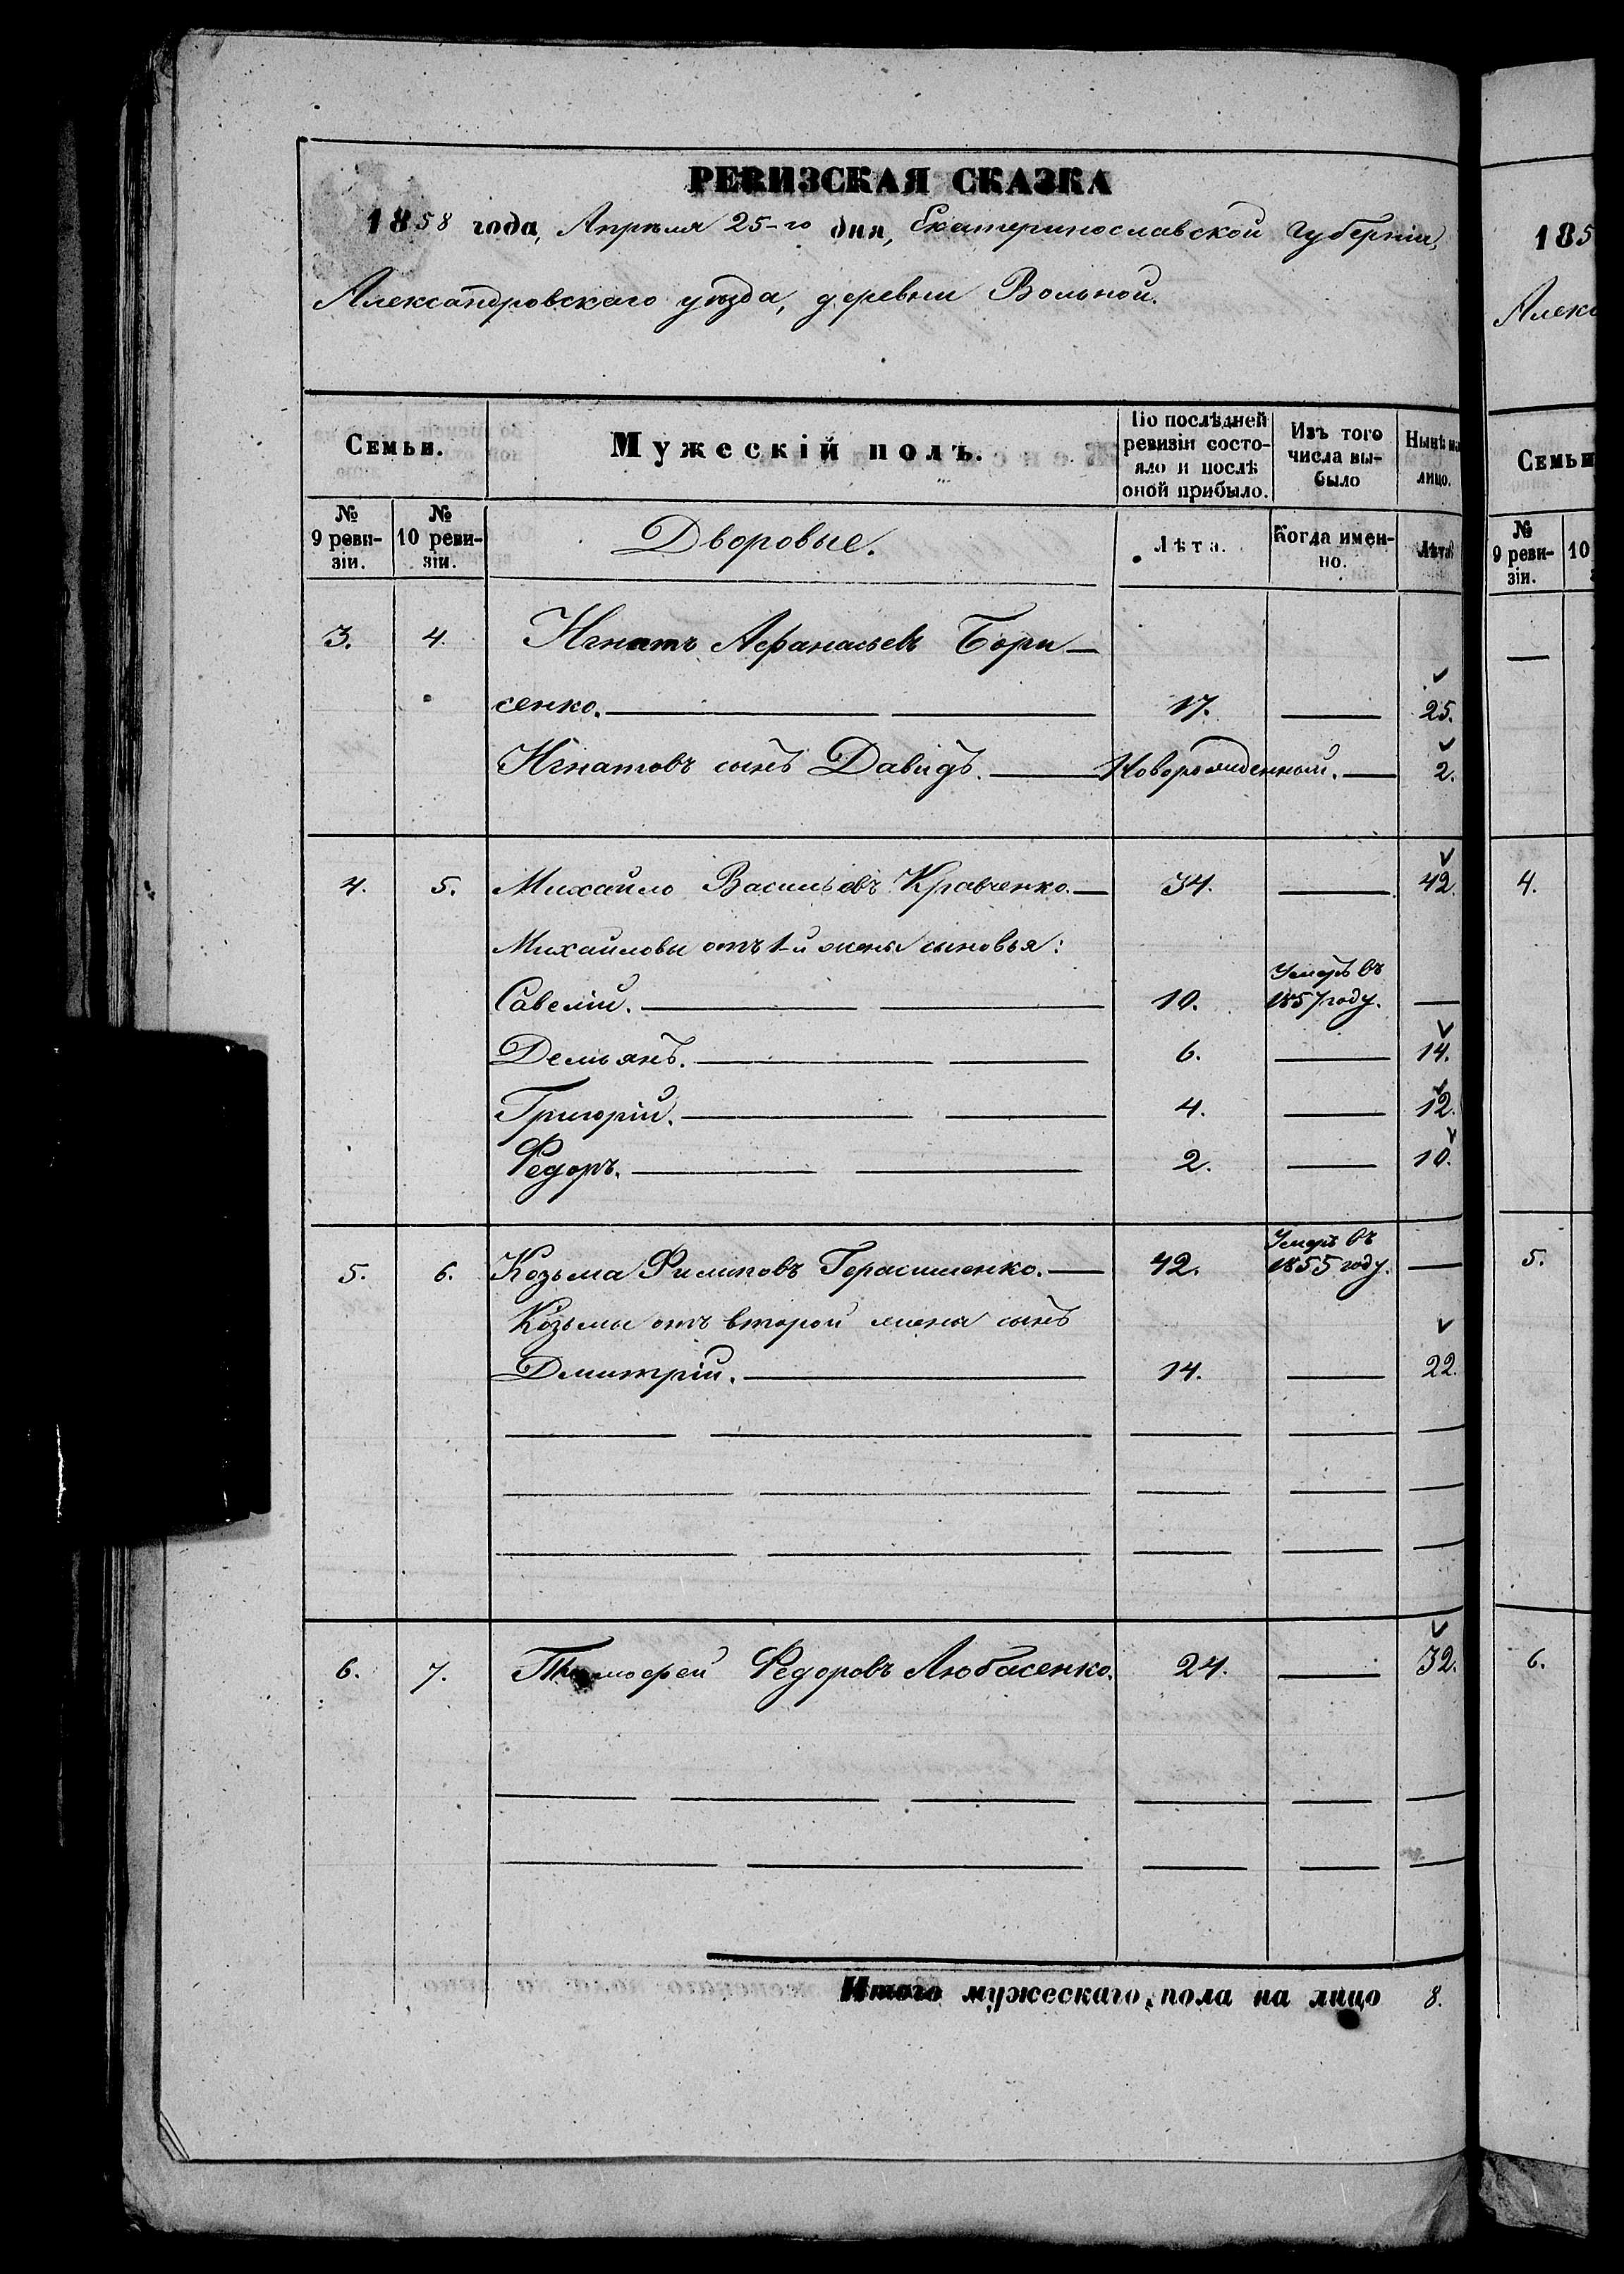 РЕВИЗСКАЯ СКАЗКА
1858 года, Апрѣля 25-го дня, Екатеринославской губерніи,
Александровскаго уѣзда, деревни Вольной.
Семьи. Мужескій полъ. По послѣдней ревизіи состояло и послѣ оной прибыло. Изъ того числа выбыло Нынѣ на лицо.
№ 9 ревизіи. № 10 ревизіи. Дворовые. Лѣта. Когда именно. Лѣта
3. 4. Игнатъ Афанасьевъ Бори-
сенко. 17. 25.
Игнатовъ сынъ Давидъ. Новорожденный. 2.
4. 5. Михайло Васильевъ Кравченко. 34. 42.
Михайловы отъ 1-й жены сыновья:
Савелій. 10. Умеръ въ 1857 году.
Демьянъ. 6. 14.
Григорій. 4. 12.
Федоръ. 2. 10.
5. 6. Козьма Филиповъ Герасименко. 42. Умеръ въ 1855 году.
Козьмы отъ второй жены сынъ
Дмитрій. 14. 22.
6. 7. Тимофей Федоровъ Любасенко. 24. 32.
Итого мужескаго пола на лицо 8.
185
Алекс
Семьи
№ 9 ревизіи. 10
4.
5.
6.